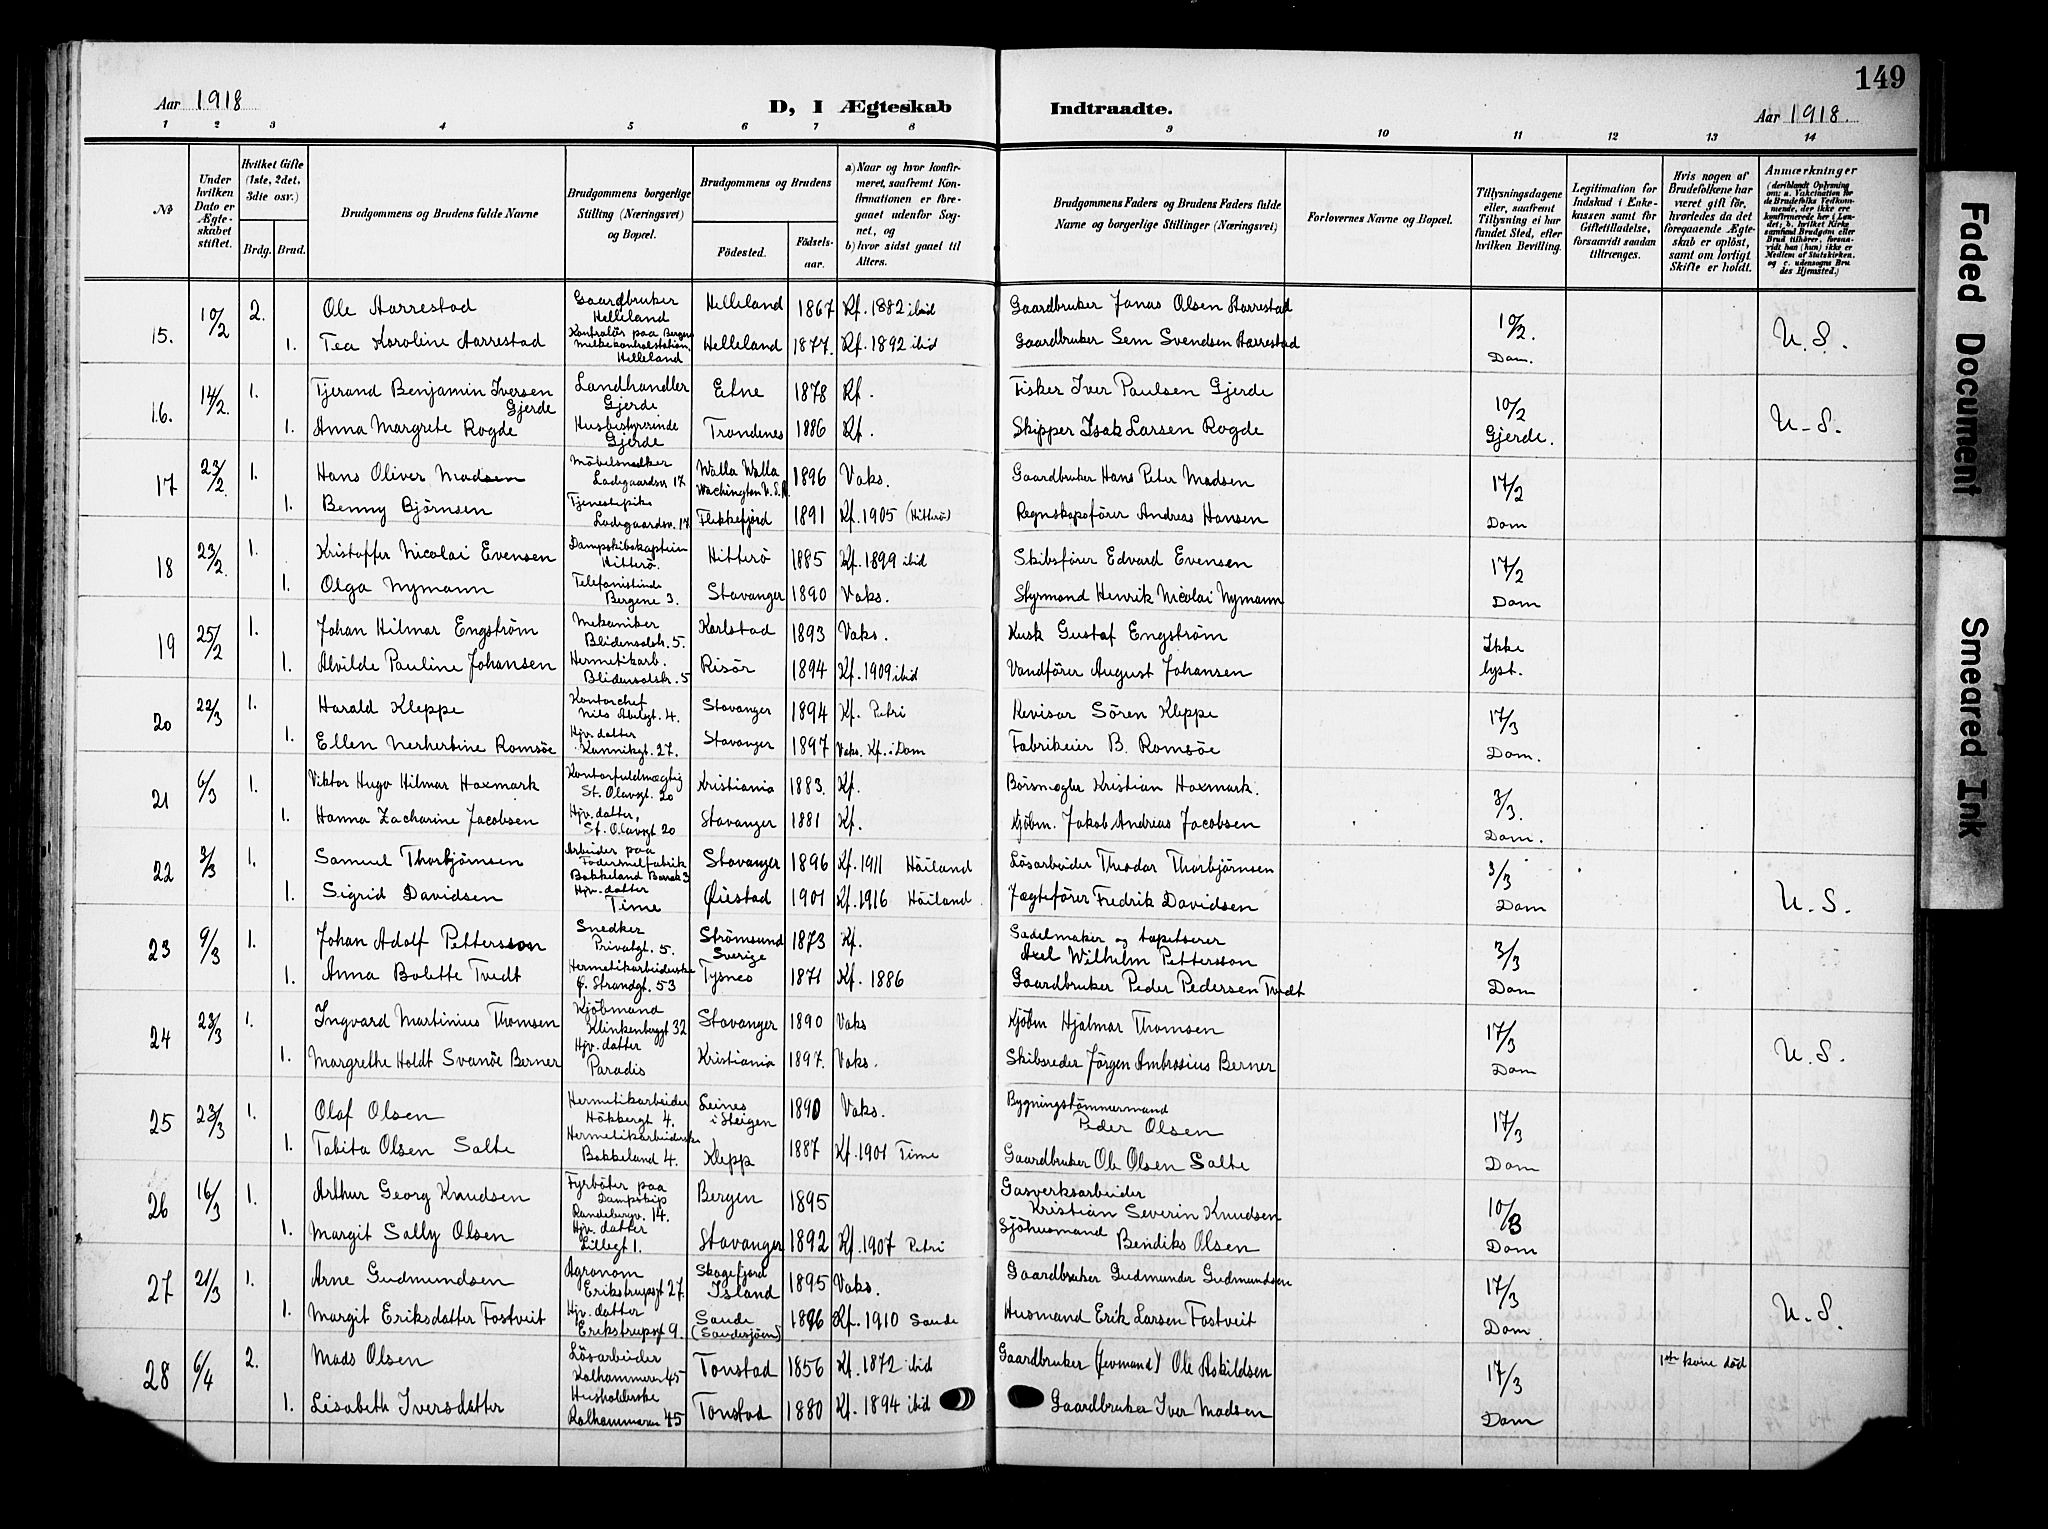 149
Aar 1918
D, I Ægteskab Indtraadte.
Aar 1918.
1 2 3 4 5 6 7 8 9 10 11 12 13 14
No
Under hvilken Dato er Ægteskabet stiftet.
Hvilket Gifte (1ste, 2det, 3die osv.)
Brdg. Brud.
Brudgommens og Brudens fulde Navne
Brudgommens borgerlige Stilling (Næringsvei) og Bopæl.
Brudgommens og Brudens
Fødested.
Fødselsaar.
a) Naar og hvor konfirmeret, saafremt Konfirmationen er foregaaet udenfor Sognet, og
b) hvor sidst gaaet til Alters.
Brudgommens Faders og Brudens Faders fulde Navne og borgerlige Stillinger (Næringsvei)
Forlovernes Navne og Bopæl.
Tillysningsdagene eller, saafremt Tillysning ei har fundet Sted, efter hvilken Bevilling.
Legitimation for Indskud i Enkekassen samt for Giftetilladelse, forsaavidt saadan tiltrænges.
Hvis nogen af Brudefolkene har været gift før, hvorledes da det foregaaende Ægteskab er opløst, samt om lovligt Skifte er holdt.
Anmærkninger
(deriblandt Oplysning om: a. Vakcination for de Brudefolks Vedkommende, der ikke ere konfirmerede her i Landet; b. hvilket Kirkesamfund Brudgom eller Brud tilhører, forsaavidt han (hun) ikke er Medlem af Statskirken. og c. udensogns Brudes Hjemsted.)
15. 10/2 2. Ole Aarrestad Gaardbruker Helleland Helleland 1867 Kf. 1882 ibid Gaardbruker Jonas Olsen Aarrestad 10/2. Dom. U. S.
1. Tea Karoline Aarrestad Kontrolör paa Bergens melkekontrolstation, Helleland Helleland 1877. Kf. 1892 ibid Gaardbruker Sem Svendsen Aarrestad
16. 14/2. 1. Tjerand Benjamin Iversen Gjerde Landhandler Gjerde Etne 1878 Kf. Fisker Iver Paulsen Gjerde 10/2 Gjerde. U. S.
1. Anna Margrete Rogde Husbestyrerinde Gjerde Trondenes 1886 Kf. Skipper Isak Larsen Rogde
17 23/2. 1. Hans Oliver Madsen Möbelsnedker Ladegaardsv 17 Walla Walla Wachington U.S.A. 1896 Vaks. Gaardbruker Hans Peter Madsen 17/2 Dom
1. Benny Björnsen Tjenestepike Ladegaardsv. 17 Flekkefjord 1891 Kf. 1905 (Hitterö) Regnskapsförer Andreas Hansen
18 23/2. 1. Kristoffer Nicolai Evensen Dampskibskaptein Hitterö. Hitterö 1885 Kf. 1899 ibid Skibsförer Edvard Evensen 17/2 Dom
1. Olga Nymann Telefonistinde Bergene 3. Stavanger 1890 Vaks. Styrmand Henrik Nicolai Nymann
19 25/2 1. Johan Hilmar Engström Mekaniker Blidensolstr. 5. Karlstad 1893 Vaks. Kusk Gustaf Engström Ikke lyst.
1. Alvilde Pauline Johansen Hermetikarb. Blidensolstr. 5 Risör 1894 Kf. 1909 ibid Vandförer August Johansen
20 22/3 1. Harald Kleppe Kontorchef Nils Abelsgt. 4. Stavanger 1894 Kf. Petri Revisor Sören Kleppe 17/3 Dom.
1. Ellen Romsöe Hjv. datter Kannikgt. 27. Stavanger 1897 Vaks. Kf. i Dom Fabrikeier B. Romsöe
21 6/3 1. Viktor Hugo Hilmar Haxmark Kontorfuldmægtig St. Olavsgt. 20 Kristiania 1883. Kf. Börsmegler Kristian Haxmark. 3/3. Dom.
1. Hanna Zacharine Jacobsen Hjv. datter, St. Olavsgt 20 Stavanger 1881 Kf. Kjöbm. Jakob Andreas Jacobsen
22 3/3 1. Samuel Thorbjörnsen Arbeider paa Födermelfabrik Bakkeland Barak 3 Stavanger 1896 Kf. 1911 Häiland Lösarbeider Theodor Thorbjörnsen 3/3 Dom U. S.
1. Sigrid Davidsen Hjv. datter Time Øiestad 1901 Kf. 1916 Häiland. Jægtefører Fredrik Davidsen
23 9/3 1. Johan Adolf Pettersson Snedker Privatgt. 5. Strömsund Sverige 1873 Kf. Sadelmaker og tapetserer Axel Wilhelm Pettersson 3/3 Dom
1. Anna Bolette Tvedt Hermetikarbeiderske Ø. Strandgt. 53 Tysnes 1871 Kf. 1886 Gaardbruker Peder Pedersen Tvedt
24 23/3 1. Ingvard Martinius Thomsen Kjöbmand Klinkenbergt 32 Stavanger 1890 Vaks Kjöbm Hjalmar Thomsen 17/3 Dom U. S.
1. Margrethe Holdt Svanöe Berner Hjv. datter Paradis Kristiania 1897. Vaks. Skibsreder Jörgen Ambrosius Berner
25 23/3 1. Olaf Olsen Hermetikarbeider Hökbergt 4. Leines i Steigen 1890 Vaks. Bygningstömmermand Peder Olsen 17/3 Dom
1. Tabita Olsen Salte Hermetikarbeiderske Bakkeland 4. Klepp 1887 Kf. 1901 Time Gaardbruker Ole Olsen Salte
26 16/3 1. Arthur Georg Knudsen Fyrböter paa Dampskip Randebergv. 14. Bergen 1895 Gasverksarbeider Kristian Severin Knudsen 10/3 Dom
1. Margit Sally Olsen Hjv. datter Lillegt 1. Stavanger 1892 Kf. 1907 Petri Sjöhusmand Bendiks Olsen
27 21/3 1. Arne Gudmundsen Agronom Erikstrupsgt 27. Skagefjord Island 1895 Vaks. Gaardbruker Gudmunder Gudmundsen 17/3 Dom. U. S.
1. Margit Eriksdatter Fostveit Hjv. datter Erikstrupsgt 9. Saude (Saudesjöen) 1896 Kf. 1910 Saude Husmand Erik Larsen Fostveit
28 6/4 2. Mads Olsen Lösarbeider Kalhammeren 45 Tonstad 1856 Kf. 1872 ibid Gaardbruker (levmand) Ole Askildsen 17/3 Dom 1ste kone död
1. Lisabeth Iversdatter Husholderske Kalhammeren 45 Tonstad 1880 Kf. 1894 ibid Gaardbruker Iver Madsen
Faded Document
Smeared Ink